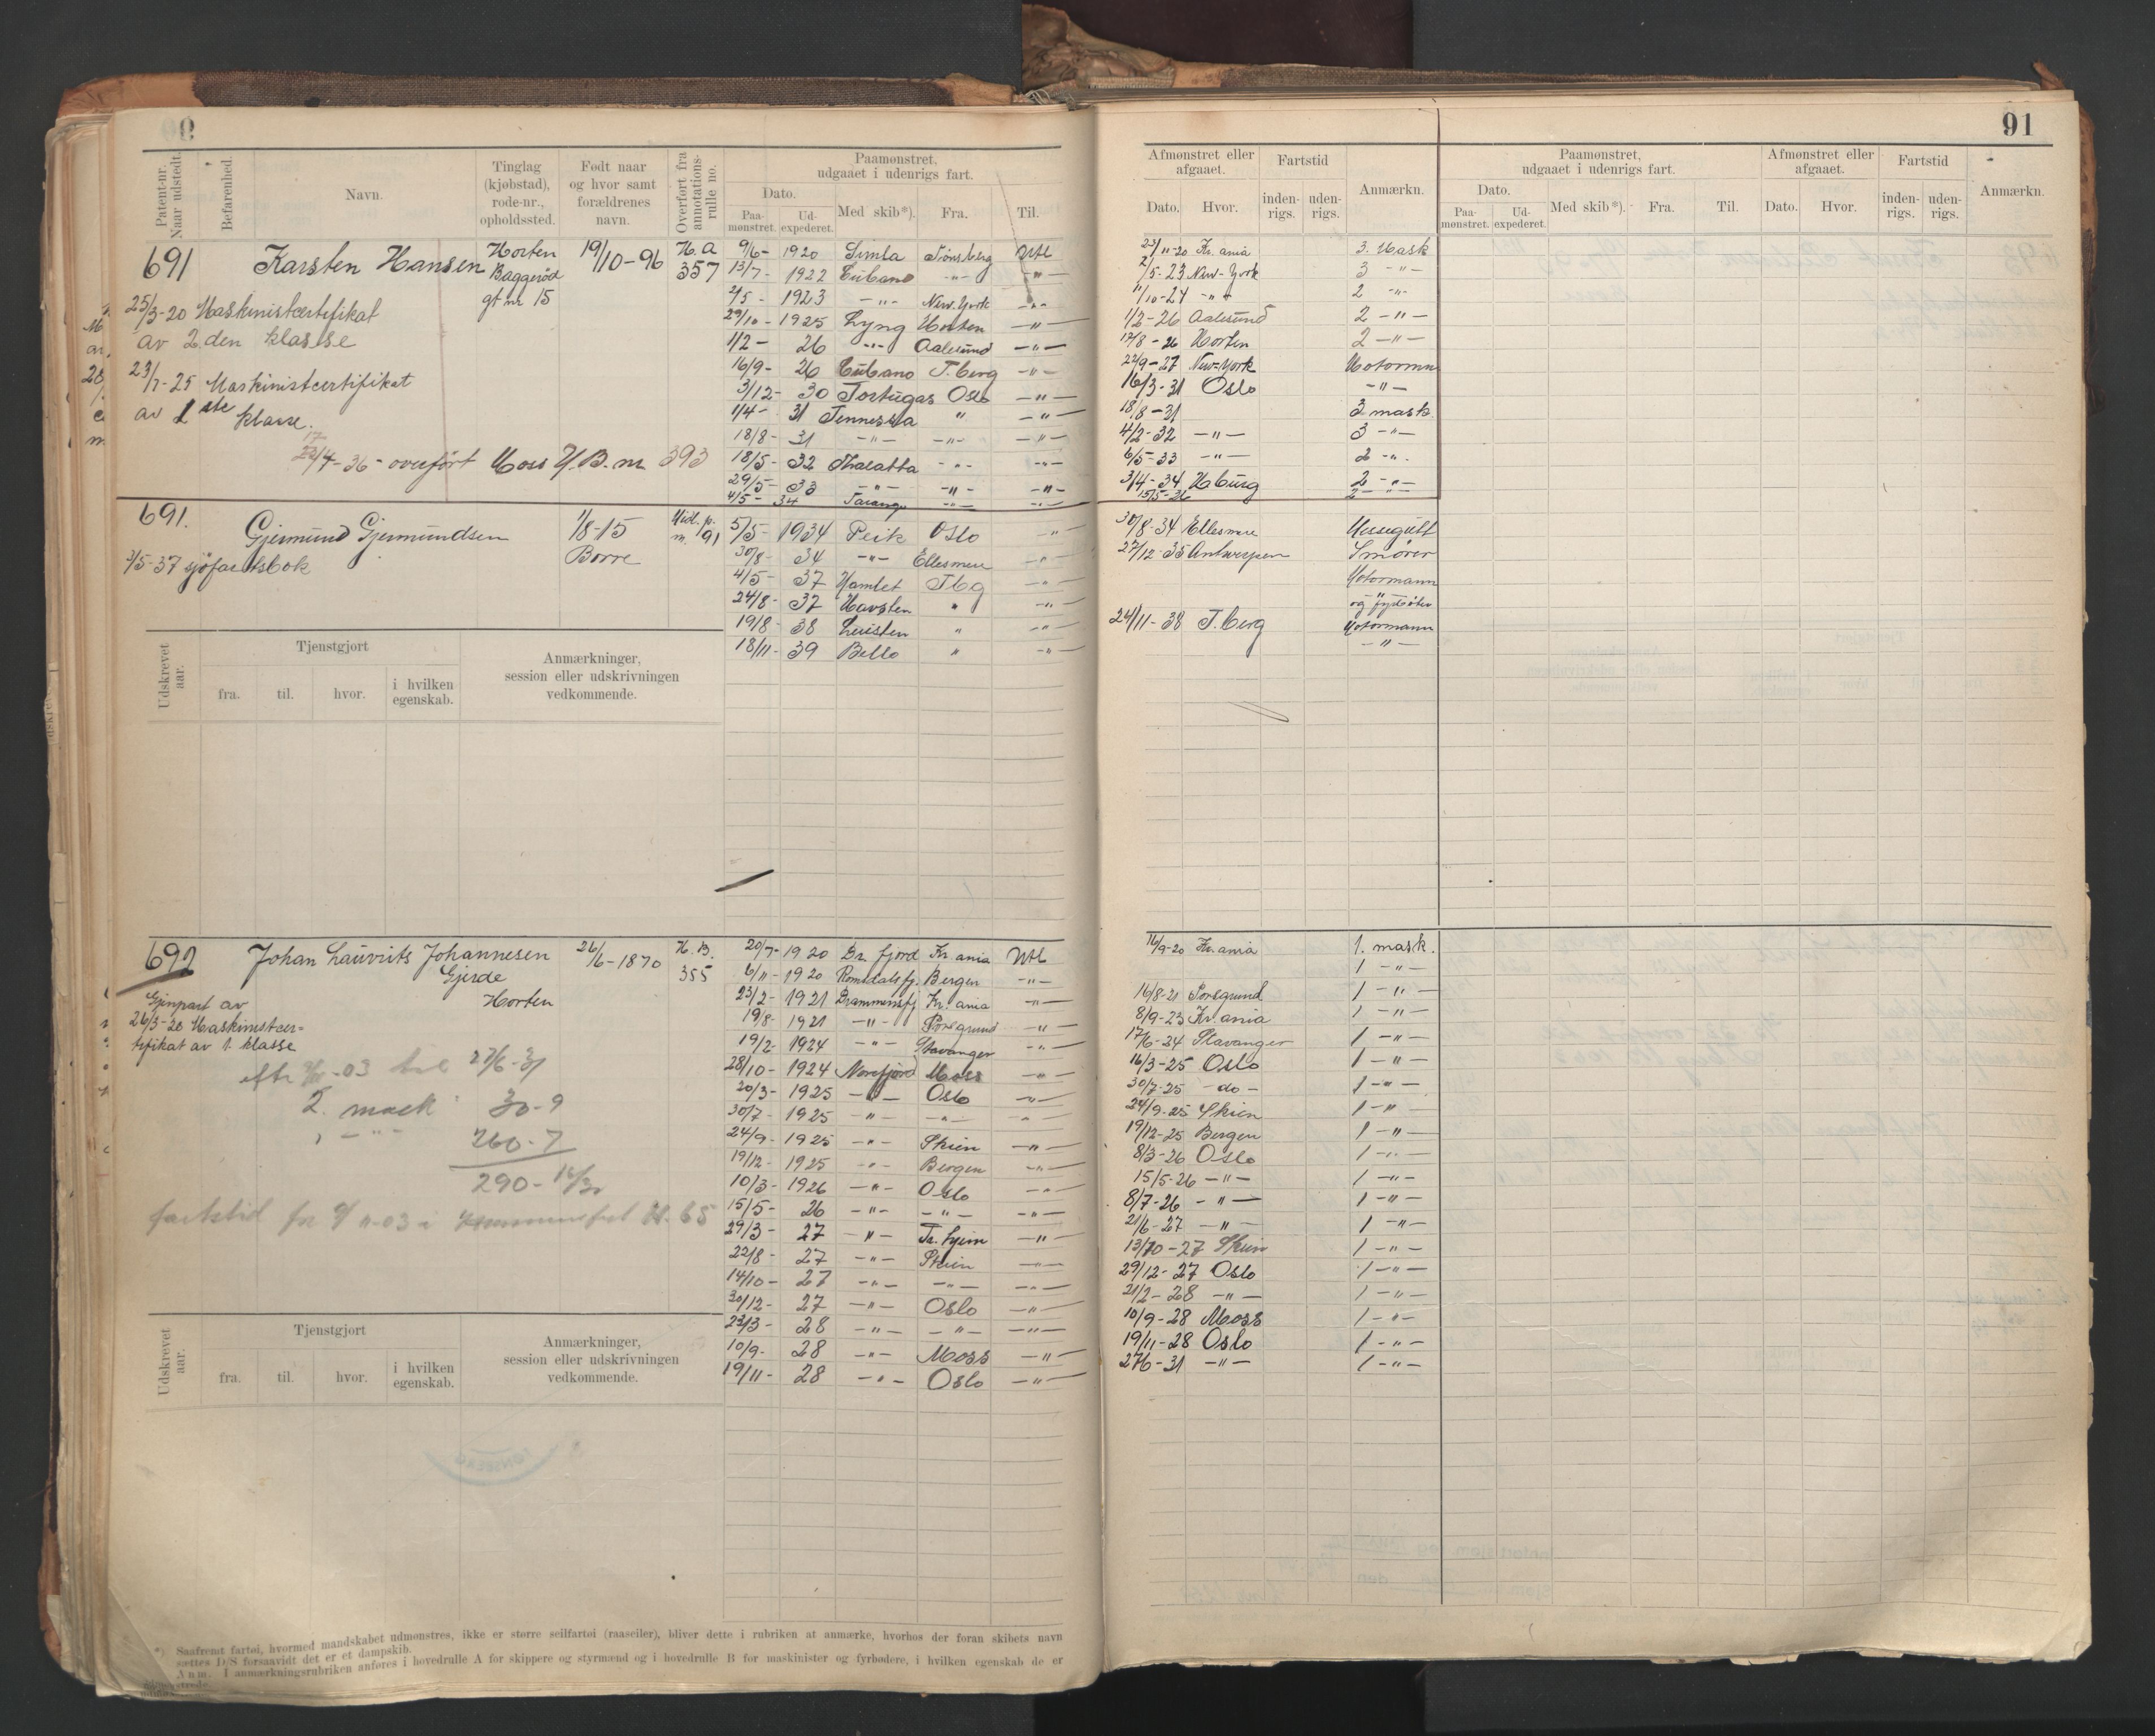 91
Patent-nr. Naar udstedt.
Befarenhed.
Navn.
Tinglag (kjøbstad), rode-nr., opholdssted.
Født naar og hvor samt forældrenes navn.
Overført fra annotations-rulle no.
Paamønstret, udgaaet i udenrigs fart.
Dato.
Paa-mønstret.
Ud-expederet.
Med skib*).
Fra.
Til.
Afmønstret eller afgaaet.
Dato.
Hvor.
Fartstid
inden-rigs.
uden-rigs.
Anmærkn.
Paamønstret, udgaaet i udenrigs fart.
Dato.
Paa-mønstret.
Ud-expederet.
Med skib*).
Fra.
Til.
Afmønstret eller afgaaet.
Dato.
Hvor.
Fartstid
inden-rigs.
uden-rigs.
Anmærkn.
691 Karsten Hansen Horten Baggerød gt nr 15 19/10-96 H. A 357
25/3-20 Maskinistcertifikat
av 2.den klasse
23/7-25 Maskinistcertifikat
av 1ste klasse.
17/4-36 - overført Moss H.B. nr 393
9/6- 1920 Simla Tønsberg Utl 23/11-20 Kr. ania 3. Mask
13/7- 1922 Cubano -"- -"- 2/5-23 New-York 3 -"-
2/5- 1923 -"- New. York -"- 11/10-24 -"- 2 -"-
29/10- 1925 Lyng Horten -"- 1/2-26 Aalesund 2 -"-
1/2- 26 -"- Aalesund -"- 17/8-26 Horten 2 -"-
16/9- 26 Cubano T. berg -"- 22/9-27 New-York Motormn
3/12- 30 Tortugas Oslo -"- 16/3-31 Oslo -"-
1/4- 31 Tennessea " -"- 18/8-31 3 mask.
18/8- 31 -"- -"- -"- 4/2-32 -"- 3 -"-
18/5- 32 Thalatta -"- -"- 6/5-33 -"- 2 -"-
29/5- 33 -"- -"- -"- 3/4-34 Hburg 2 -"-
4/5- 34 -"- -"- 15/5-36 2 -"-
691. Gjermund Gjermundsen 1/8-15 Borre Midl. p. m. 191
3/5-37 sjøfartsbok
5/5- 1934 Peik Oslo -"- 30/8-34 Ellesmere Messegutt
30/8- 34 -"- Ellesmere -"- 27/12-35 Antwerpen Smører
4/5- 37 Hamlet Tbg -"- Motormann
24/8- 37 Havsten " -"- -"- og fyrbøter
19/8- 38 Luisten " -"- 24/11-38 T.berg Motormann
18/11- 39 Bello " -"- -"-
Udskrevet aar.
Tjenstgjort
fra.
til.
hvor.
i hvilken egenskab.
Anmærkninger, session eller udskrivningen vedkommende.
692 Johan Lauvrits Johannesen Gjerde Horten 26/6-1870 H. B. 355
Gjenpart av
26/3-20 Maskinistcer-
tifikat av 1. klasse
-03 til 27/6-31
2. mask 30-9
-"- 260-7
290-
fartstid
20/7- 1920 Dr. fjord Kr ania Utl 16/9-20 Kr. ania 1. mask.
6/11- 1920 Romsdalsfj. Bergen -"- 1 -"-
23/2- 1921 Drammensfj Kr. ania -"- 16/8-21 Porsgrund 1 -"-
19/8- 1921 -"- Porsgrund -"- 8/9-23 Kr. ania 1 -"-
19/2- 1924 -"- Stavanger -"- 17/6-24 Stavanger 1 -"-
28/10- 1924 Norefjord Moss -"- 16/3-25 Oslo 1 -"-
20/3- 1925 -"- Oslo -"- 30/7-25 -do- 1 -"-
30/7- 1925 -"- -"- -"- 24/9-25 Skien 1 -"-
24/9- 1925 -"- Skien -"- 19/12-25 Bergen 1 -"-
19/12- 1925 -"- Bergen -"- 8/3-26 Oslo 1 -"-
10/3- 1926 -"- Oslo -"- 15/5-26 -"- 1 -"-
15/5- 26 -"- -"- -"- 8/7-26 -"- 1 -"-
29/3- 27 -"- Tr. hjem -"- 21/6-27 -"- 1 -"-
22/8- 27 -"- Skien -"- 13/10-27 Skien 1 -"-
14/10- 27 -"- -"- -"- 29/12-27 Oslo 1 -"-
30/12- 27 -"- Oslo -"- 21/2-28 -"- 1 -"-
23/3- 28 -"- -"- -"- 10/9-28 Moss 1 -"-
10/9- 28 -"- Moss -"- 19/11-28 Oslo 1 -"-
19/11- 28 -"- Oslo -"- 27/6-31 -"- 1 -"-
Udskrevet aar.
Tjenstgjort
fra.
til.
hvor.
i hvilken egenskab.
Anmærkninger, session eller udskrivningen vedkommende.
*) Saafremt fartøi, hvormed mandskabet udmønstres, ikke er større seilfartøi (raaseiler), bliver dette i rubriken at anmærke, hvorhos der foran skibets navn
sættes D/S forsaavidt det er et dampskib.
Anm. I anmærkningsrubriken anføres i hovedrulle A for skippere og styrmænd og i hovedrulle B for maskinister og fyrbødere, i hvilken egenskab de er